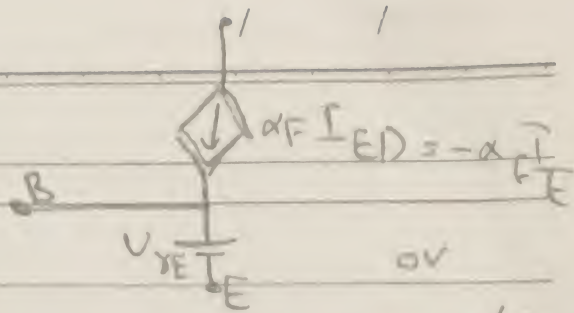 α_F I_ED = -α_F I_E
B
V_γE
E
0V